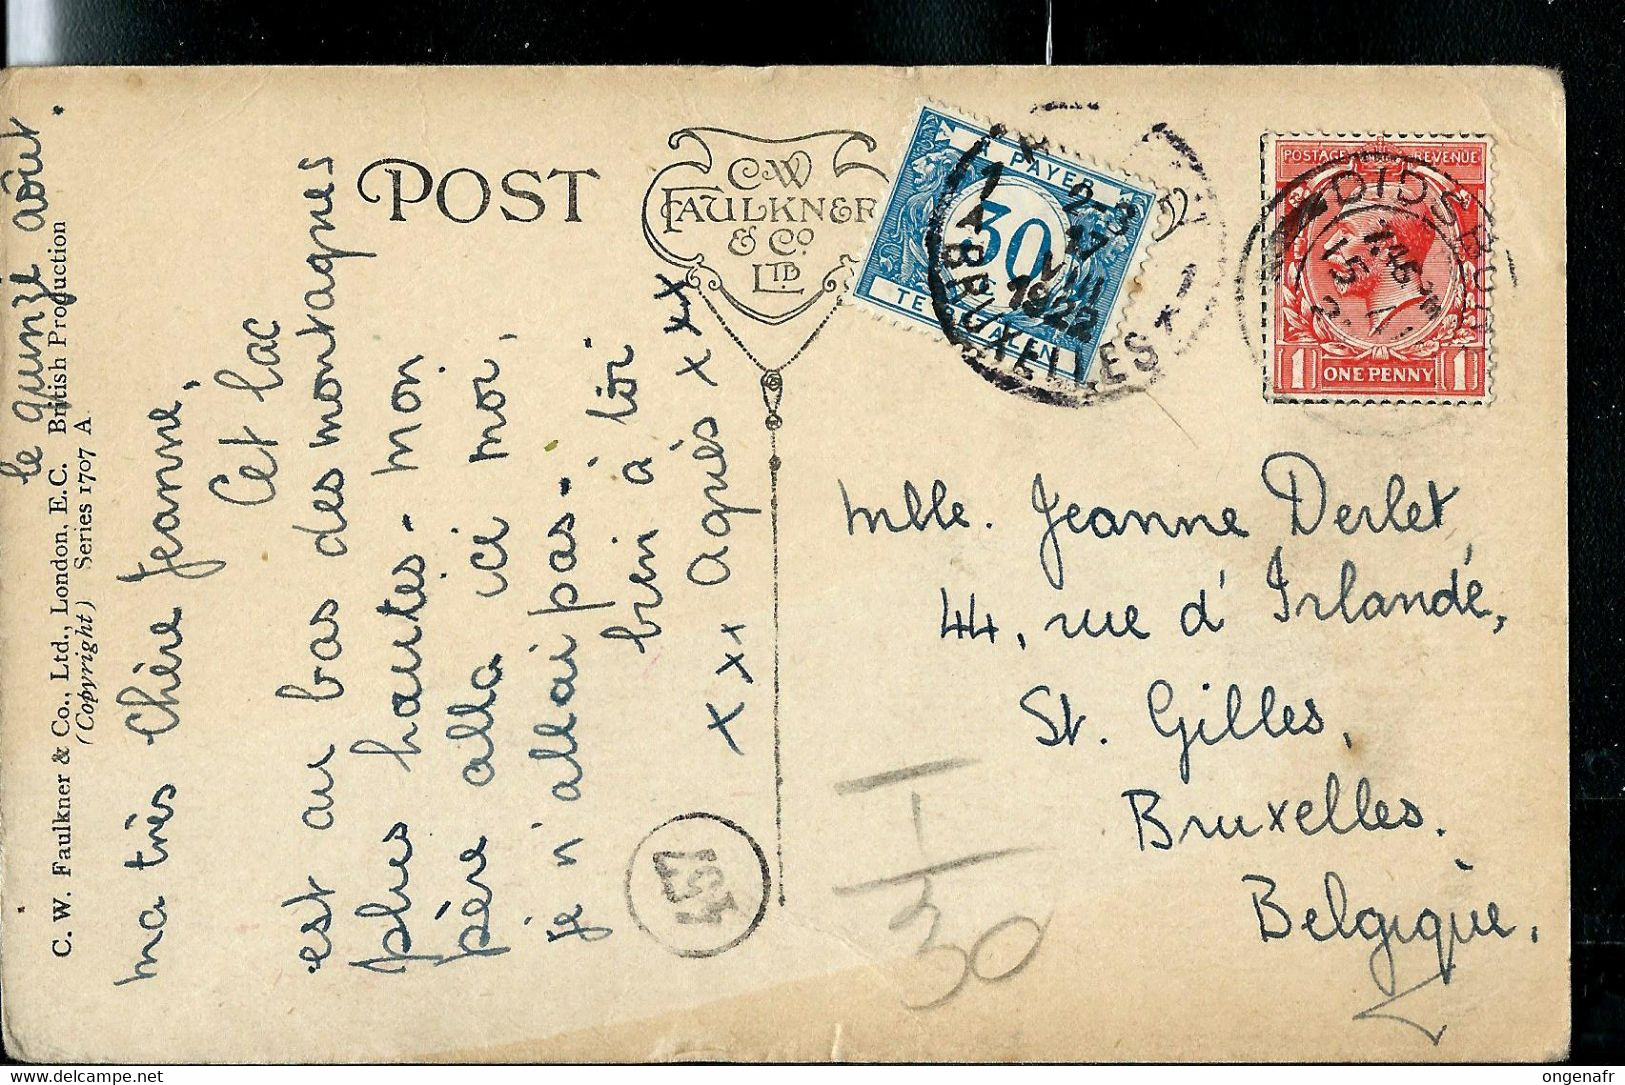 POST
C W
FAULKNER
& Co
LTD
C. W. Faulkner & Co., Ltd., London, E.C. British Production
(Copyright) Series 1707 A
le quinze août.
ma très chère Jeanne,
Cet lac
est au bas des montagnes
plus hautes. mon
père alla ici moi,
je n'allai pas.
bien à toi
agnès x xxx
x xx,
A PAYER
30
TE BETALEN
BRUXELLES
1 A
2-3
17
VIII
1922
POSTAGE REVENUE
1 ONE PENNY 1
DIDSBURY
7.45 PM
15
mlle. Jeanne Derlet
44, rue d' Irlande,
St. Gilles,
Bruxelles.
Belgique.
T
30
ongenafr